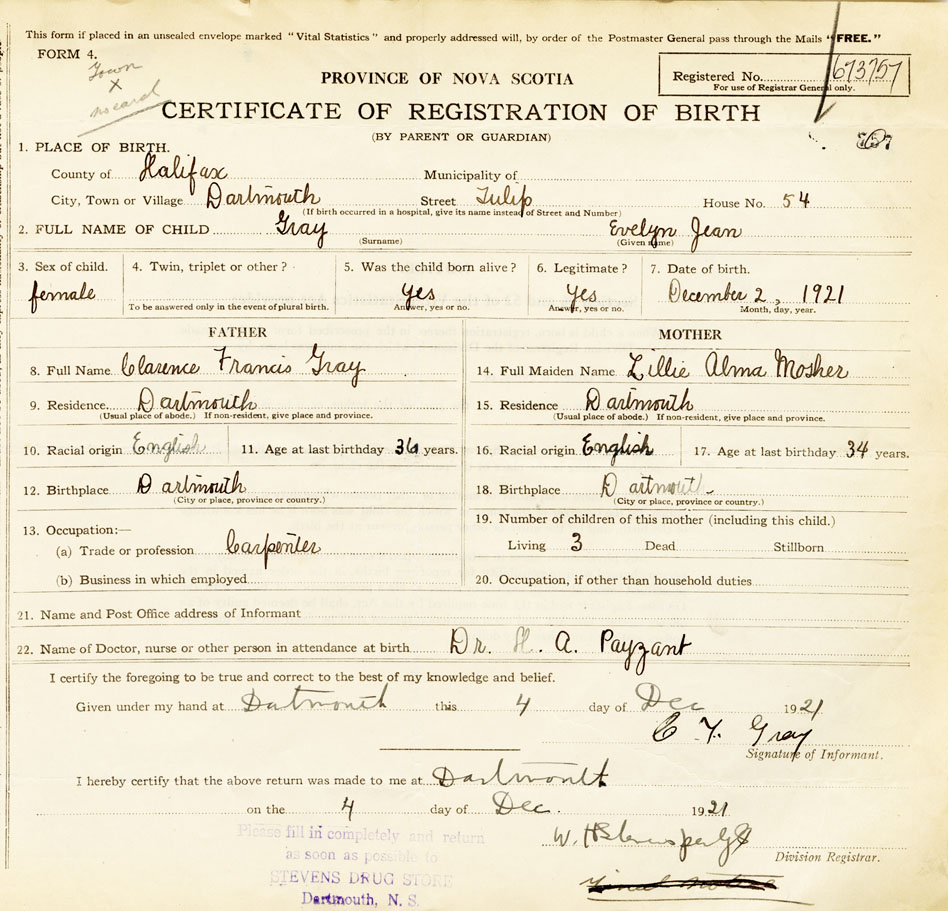 This form if placed in an unsealed envelope marked "Vital Statistics" and properly addressed will, by order of the Postmaster General pass through the Mails "FREE."
FORM 4.
Town
X
no card
PROVINCE OF NOVA SCOTIA
Registered No. 673757
For use of Registrar General only.
CERTIFICATE OF REGISTRATION OF BIRTH
(BY PARENT OR GUARDIAN)
1. PLACE OF BIRTH.
County of Halifax Municipality of
City, Town or Village Dartmouth Street Tulip House No. 54
(If birth occurred in a hospital, give its name instead of Street and Number)
2. FULL NAME OF CHILD Gray Evelyn Jean
(Surname) (Given name)
3. Sex of child. 4. Twin, triplet or other? 5. Was the child born alive? 6. Legitimate? 7. Date of birth.
female yes yes December 2, 1921
To be answered only in the event of plural birth. Answer, yes or no. Answer, yes or no. Month, day, year.
FATHER MOTHER
8. Full Name Clarence Francis Gray 14. Full Maiden Name Lillie Alma Mosher
9. Residence Dartmouth 15. Residence Dartmouth
(Usual place of abode.) If non-resident, give place and province. (Usual place of abode.) If non-resident, give place and province.
10. Racial origin English 11. Age at last birthday 36 years. 16. Racial origin English 17. Age at last birthday 34 years.
12. Birthplace Dartmouth 18. Birthplace Dartmouth
(City or place, province or country.) (City or place, province or country.)
13. Occupation:— 19. Number of children of this mother (including this child.)
(a) Trade or profession Carpenter Living 3 Dead Stillborn
(b) Business in which employed 20. Occupation, if other than household duties
21. Name and Post Office address of Informant
22. Name of Doctor, nurse or other person in attendance at birth Dr. H. A. Payzant
I certify the foregoing to be true and correct to the best of my knowledge and belief.
Given under my hand at Dartmouth this 4 day of Dec 1921
C F. Gray
Signature of Informant.
I hereby certify that the above return was made to me at Dartmouth
on the 4 day of Dec. 1921
W. H
Division Registrar.
Please fill in completely and return
as soon as possible to
STEVENS DRUG STORE
Dartmouth, N. S.